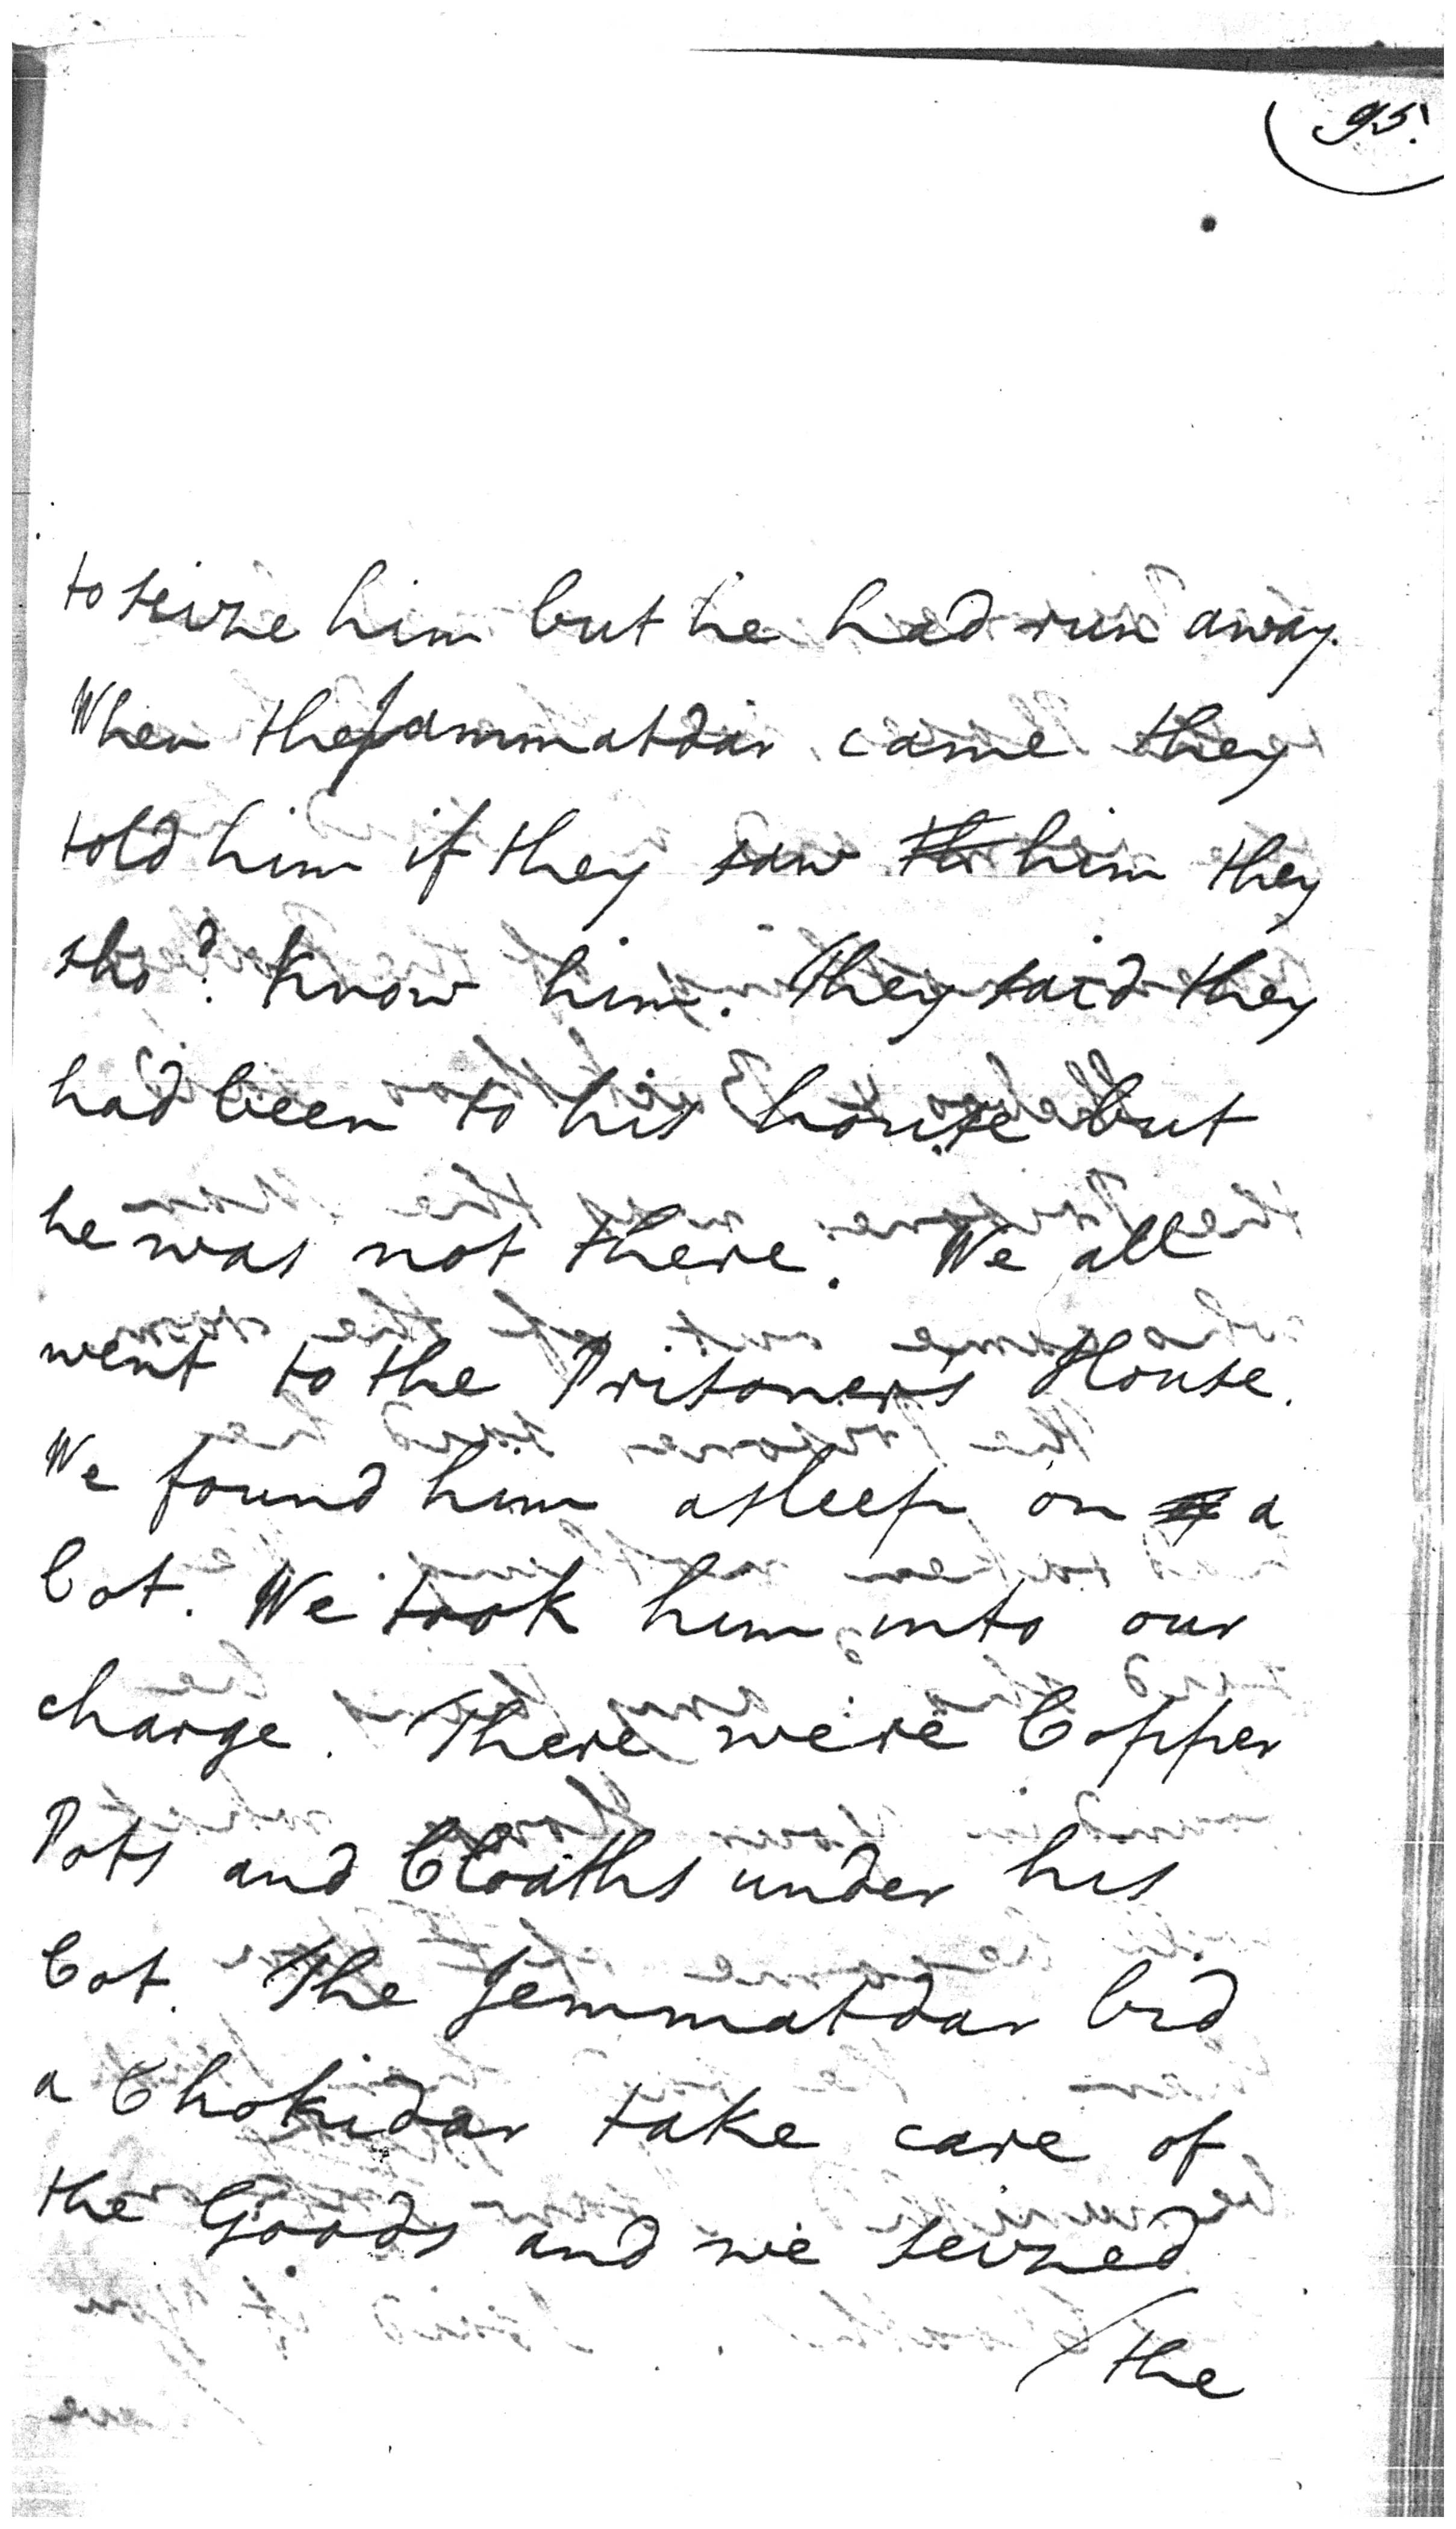 95.
to seize him but he had run away.
When the Jammatdar came they
told him if they saw th him they
sho.d know him. They said they
had been to his house but
he was not there. We all
went to the Prisoner's House.
We found him asleep on a
Cot. We took him into our
charge. There were Copper
Pots and Cloaths under his
Cot. The Jemmatdar bid
a Chokidar take care of
the Goods and we seized
/the